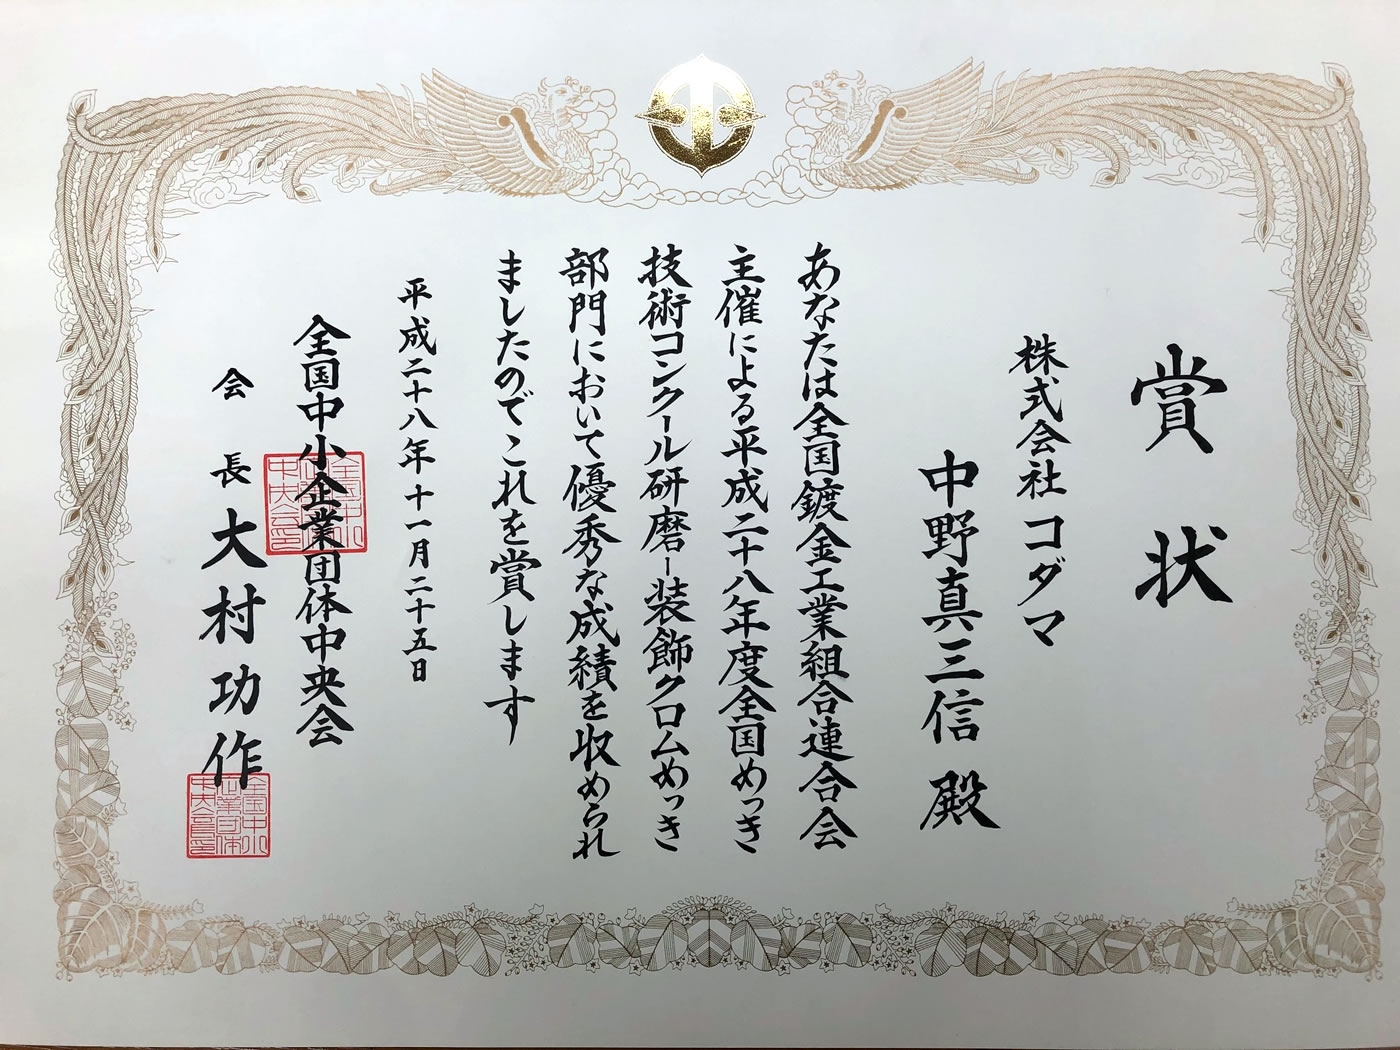 賞状
株式会社コダマ
中野真三信殿
あなたは全国鍍金工業組合連合会
主催による平成二十八年度全国めっき
技術コンクール研磨ー装飾クロムめっき
部門において優秀な成績を収められ
ましたのでこれを賞します
平成二十八年十一月二十五日
全国中小企業団体中央会
会長大村功作
全国中小
企業団体
中央会印